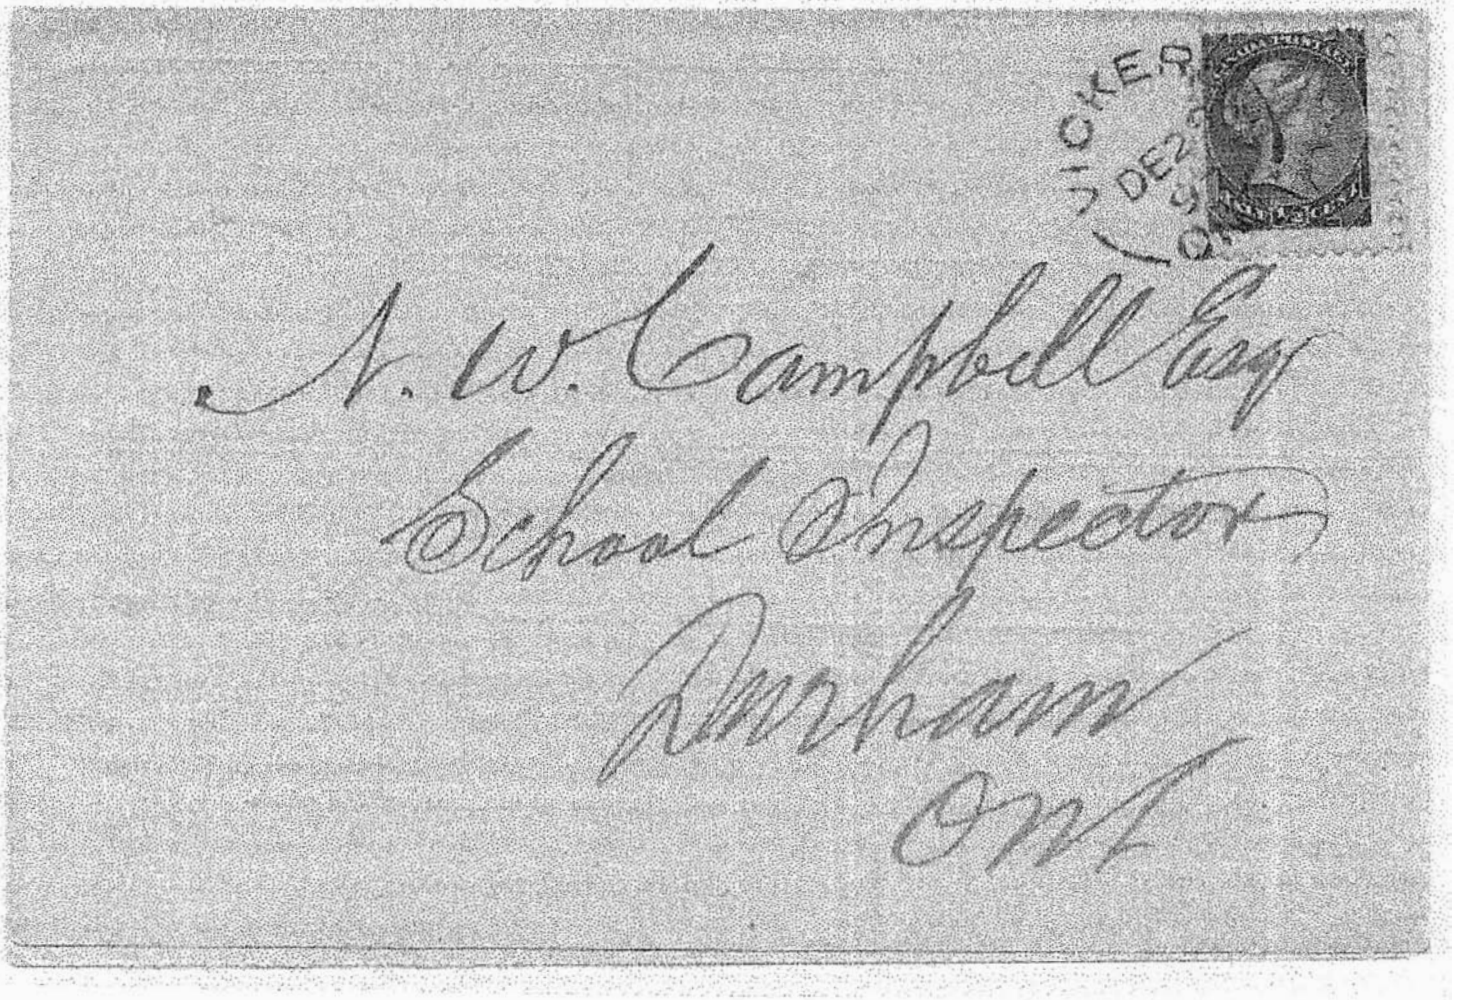 VICKER
DE 2
9
ON
CANADA POSTAGE
HALF CENT
N. W. Campbell Esq
School Inspector
Durham
Ont